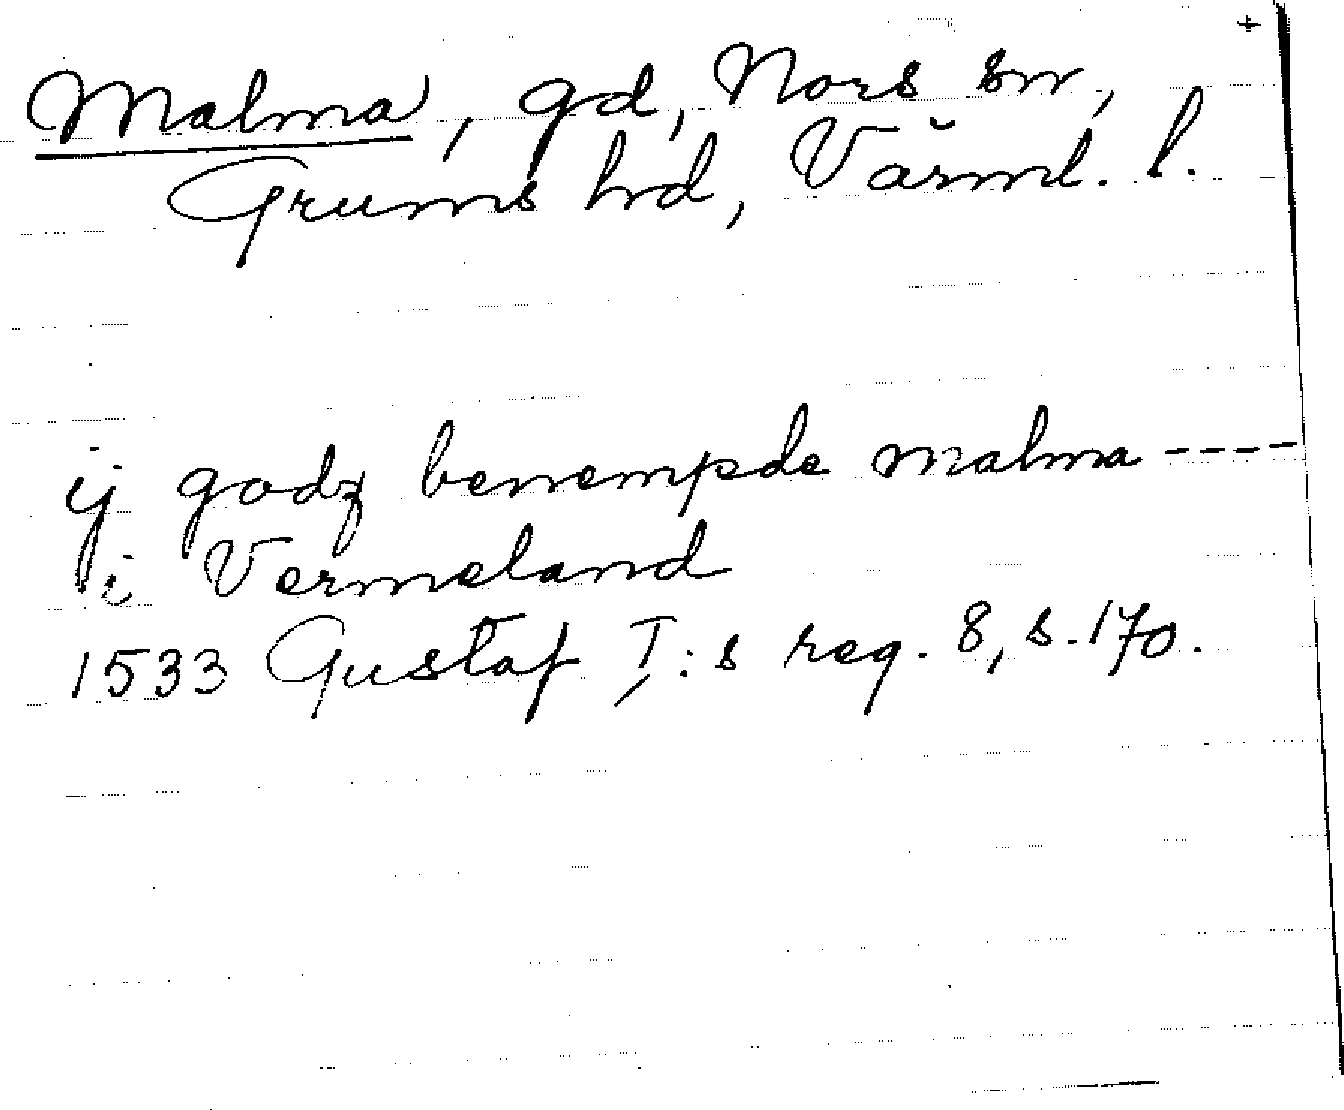 +
Malma, gd, Nors sn,
Grums hd, Värml. l.
ij godz benempde malma ----
i Vermeland
1533 Gustaf I:s reg. 8, s. 170.